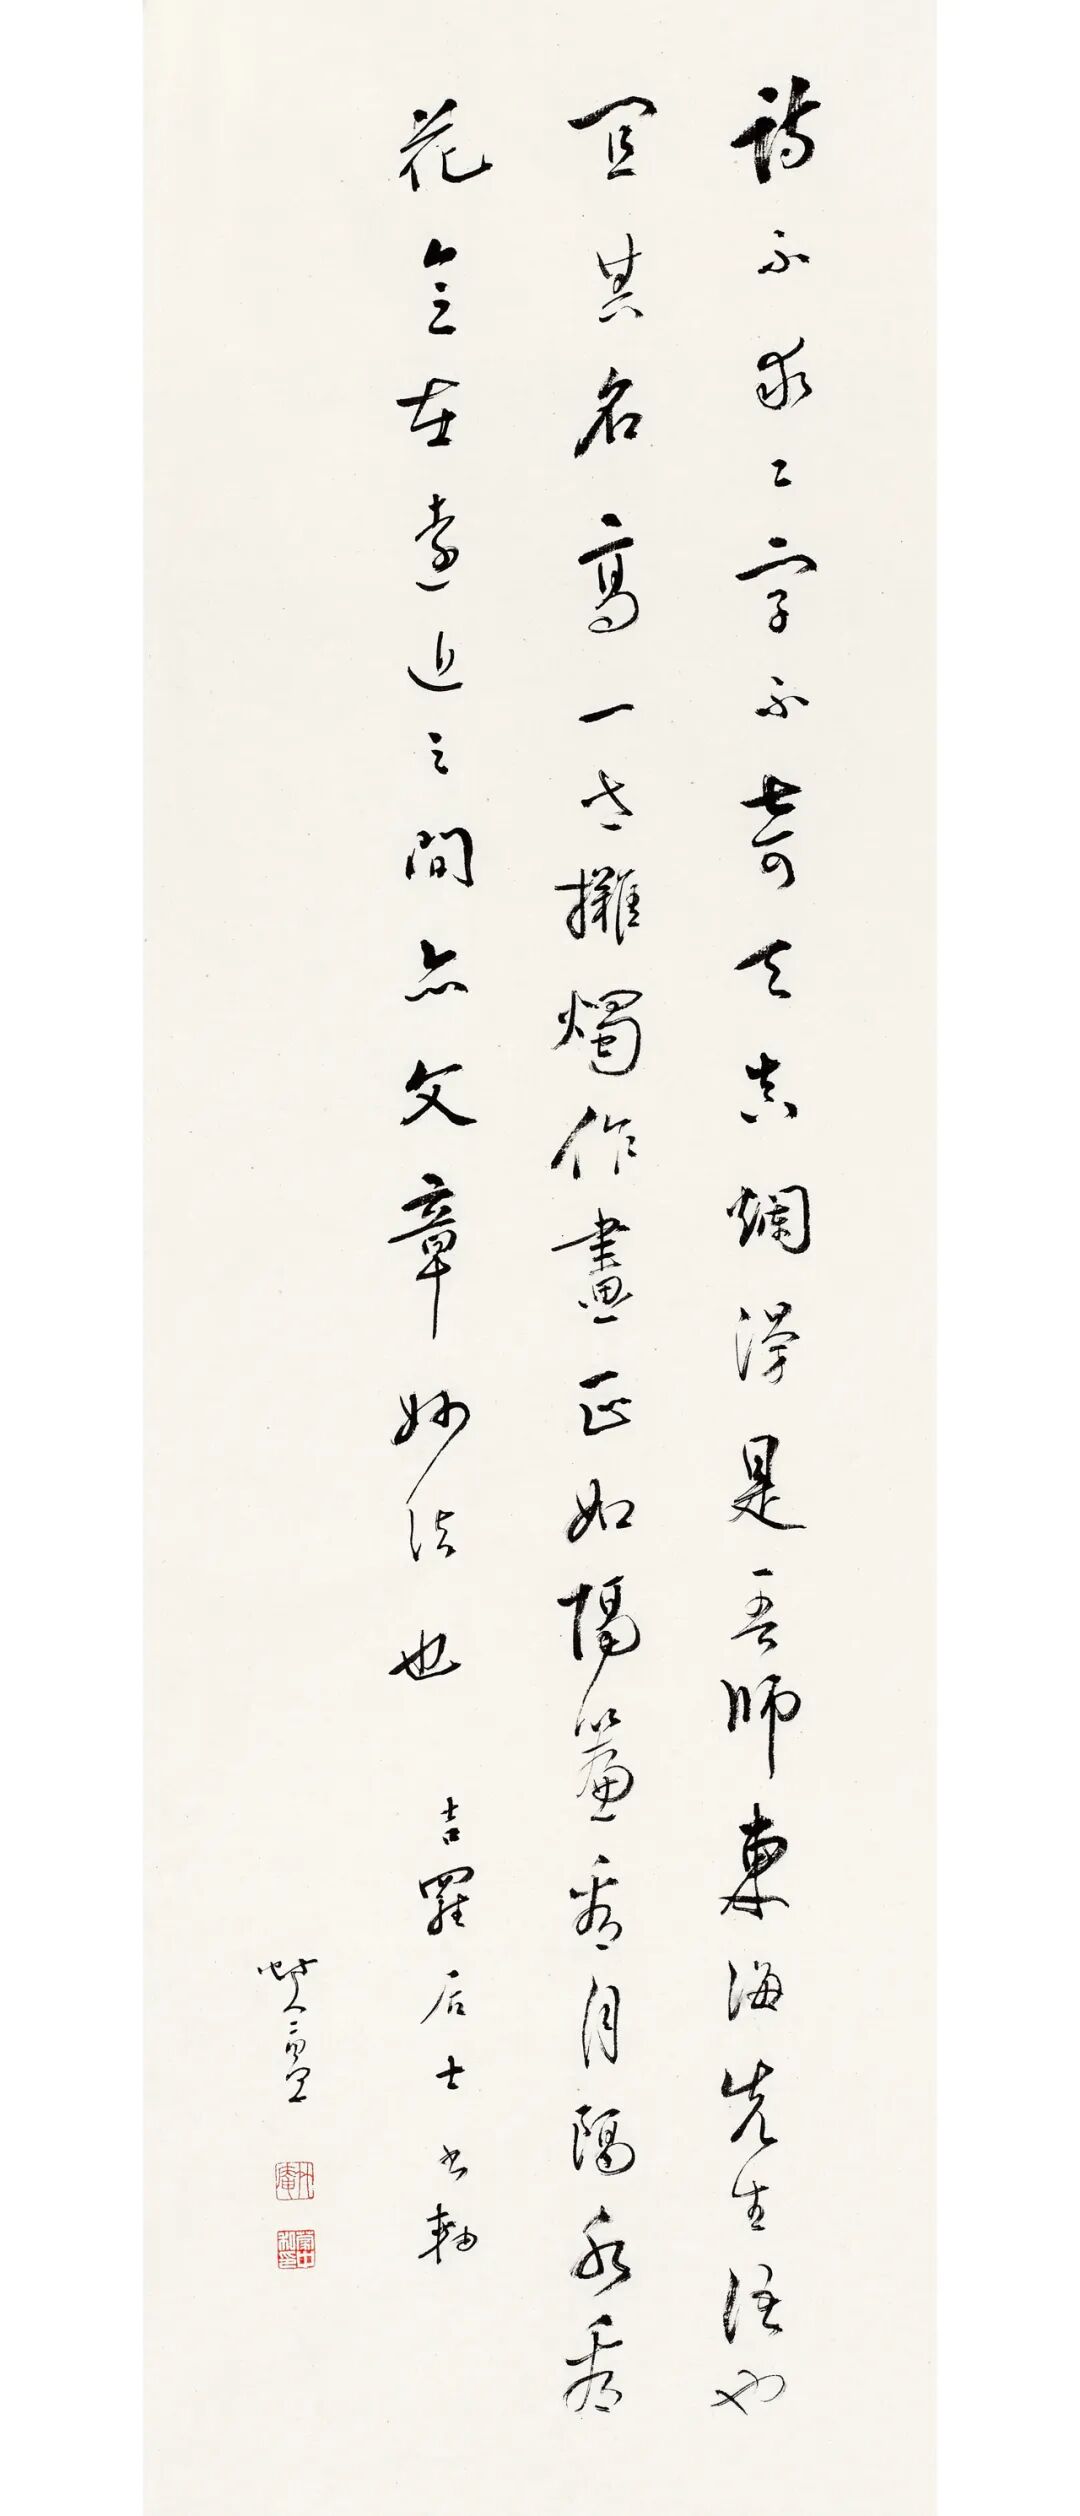 詩不求工字不奇天真爛漫是吾師東海先生語也
宜其名高一世燭作畫正如隔簾看月隔水看
花意在遠近之間亦文章妙法也 吉羅居士書軸